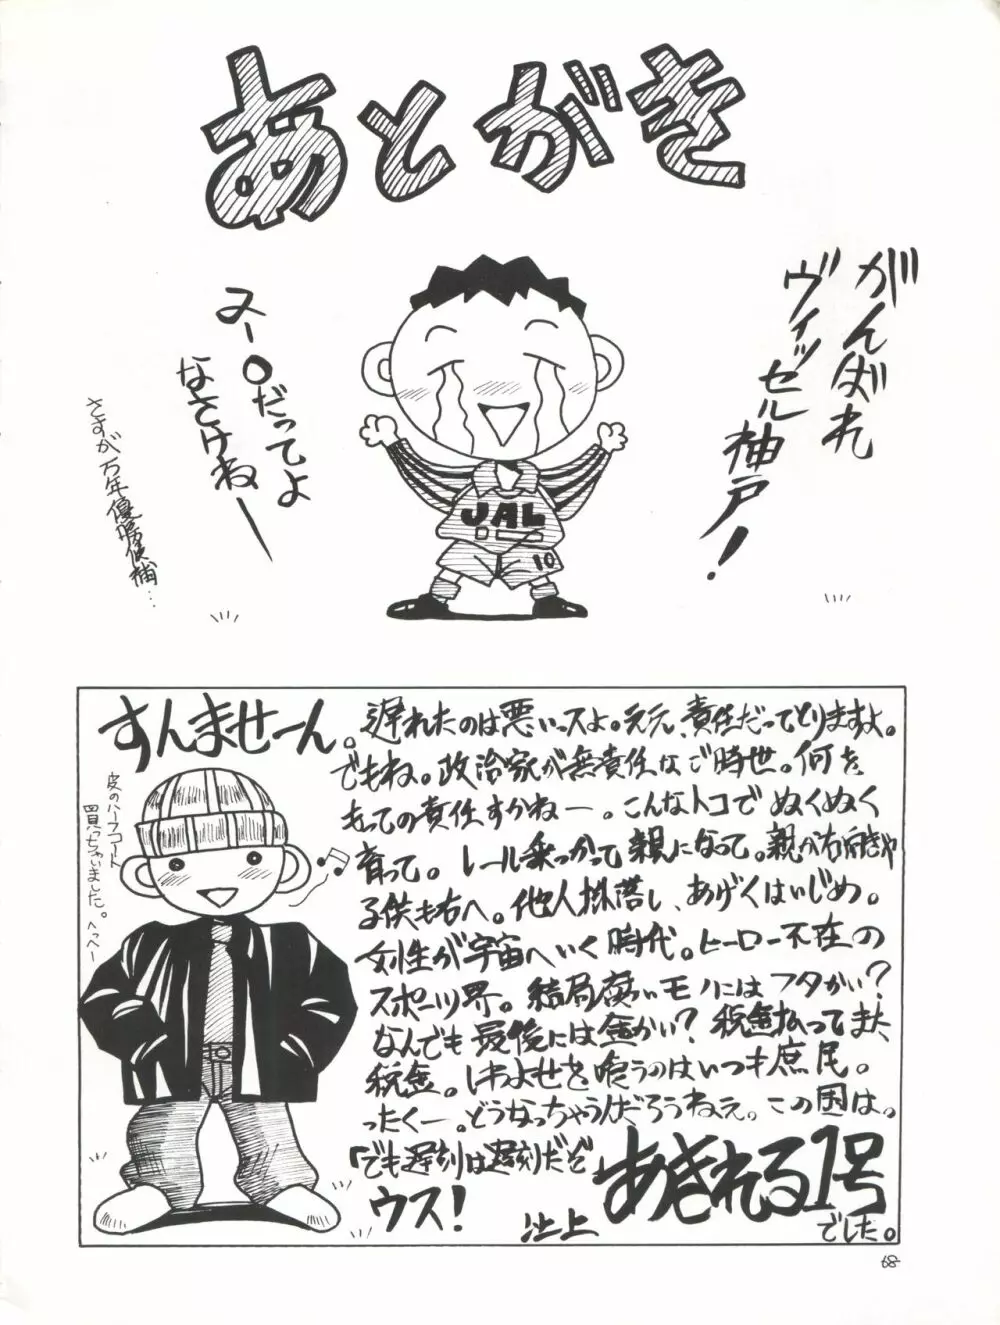 あとがき
がんばれ
ヴィッセル神戸！
JAL
10
ヌー〇だってよ
なさけねー
さすが万年優勝候補…
すんませーん。
遅れたのは悪いっスよ。ええ、責任だってとりますよ。
でもね。政治家が無責任なご時世。何を
もっての責任すかねー。こんなトコでぬくぬく
育って。レール乗っかって親になって。親が右向きゃ
子供も右へ。他人蹴落し、あげくはいじめ。
女性が宇宙へいく時代。ヒーロー不在の
スポーツ界。結局腐いモノにはフタかい？
なんでも最後には金かい？税金払ってまた、
税金。しわよせを喰うのはいつも庶民。
ったくー。どうなっちゃうんだろうねえ。この国は。
「でも遅刻は遅刻だぞ」
ウス！
池上
あきれる1号
でした。
皮のハーフコート
買っちゃいました。へっへー
68